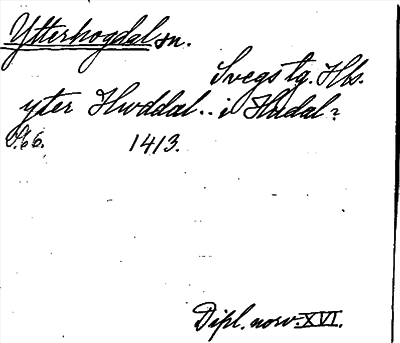 Ytterhogdal sn.
Svegs tg. Hbs.
yter Hwddal .. i Hudal?
1413.
Dipl. norv. XVI.